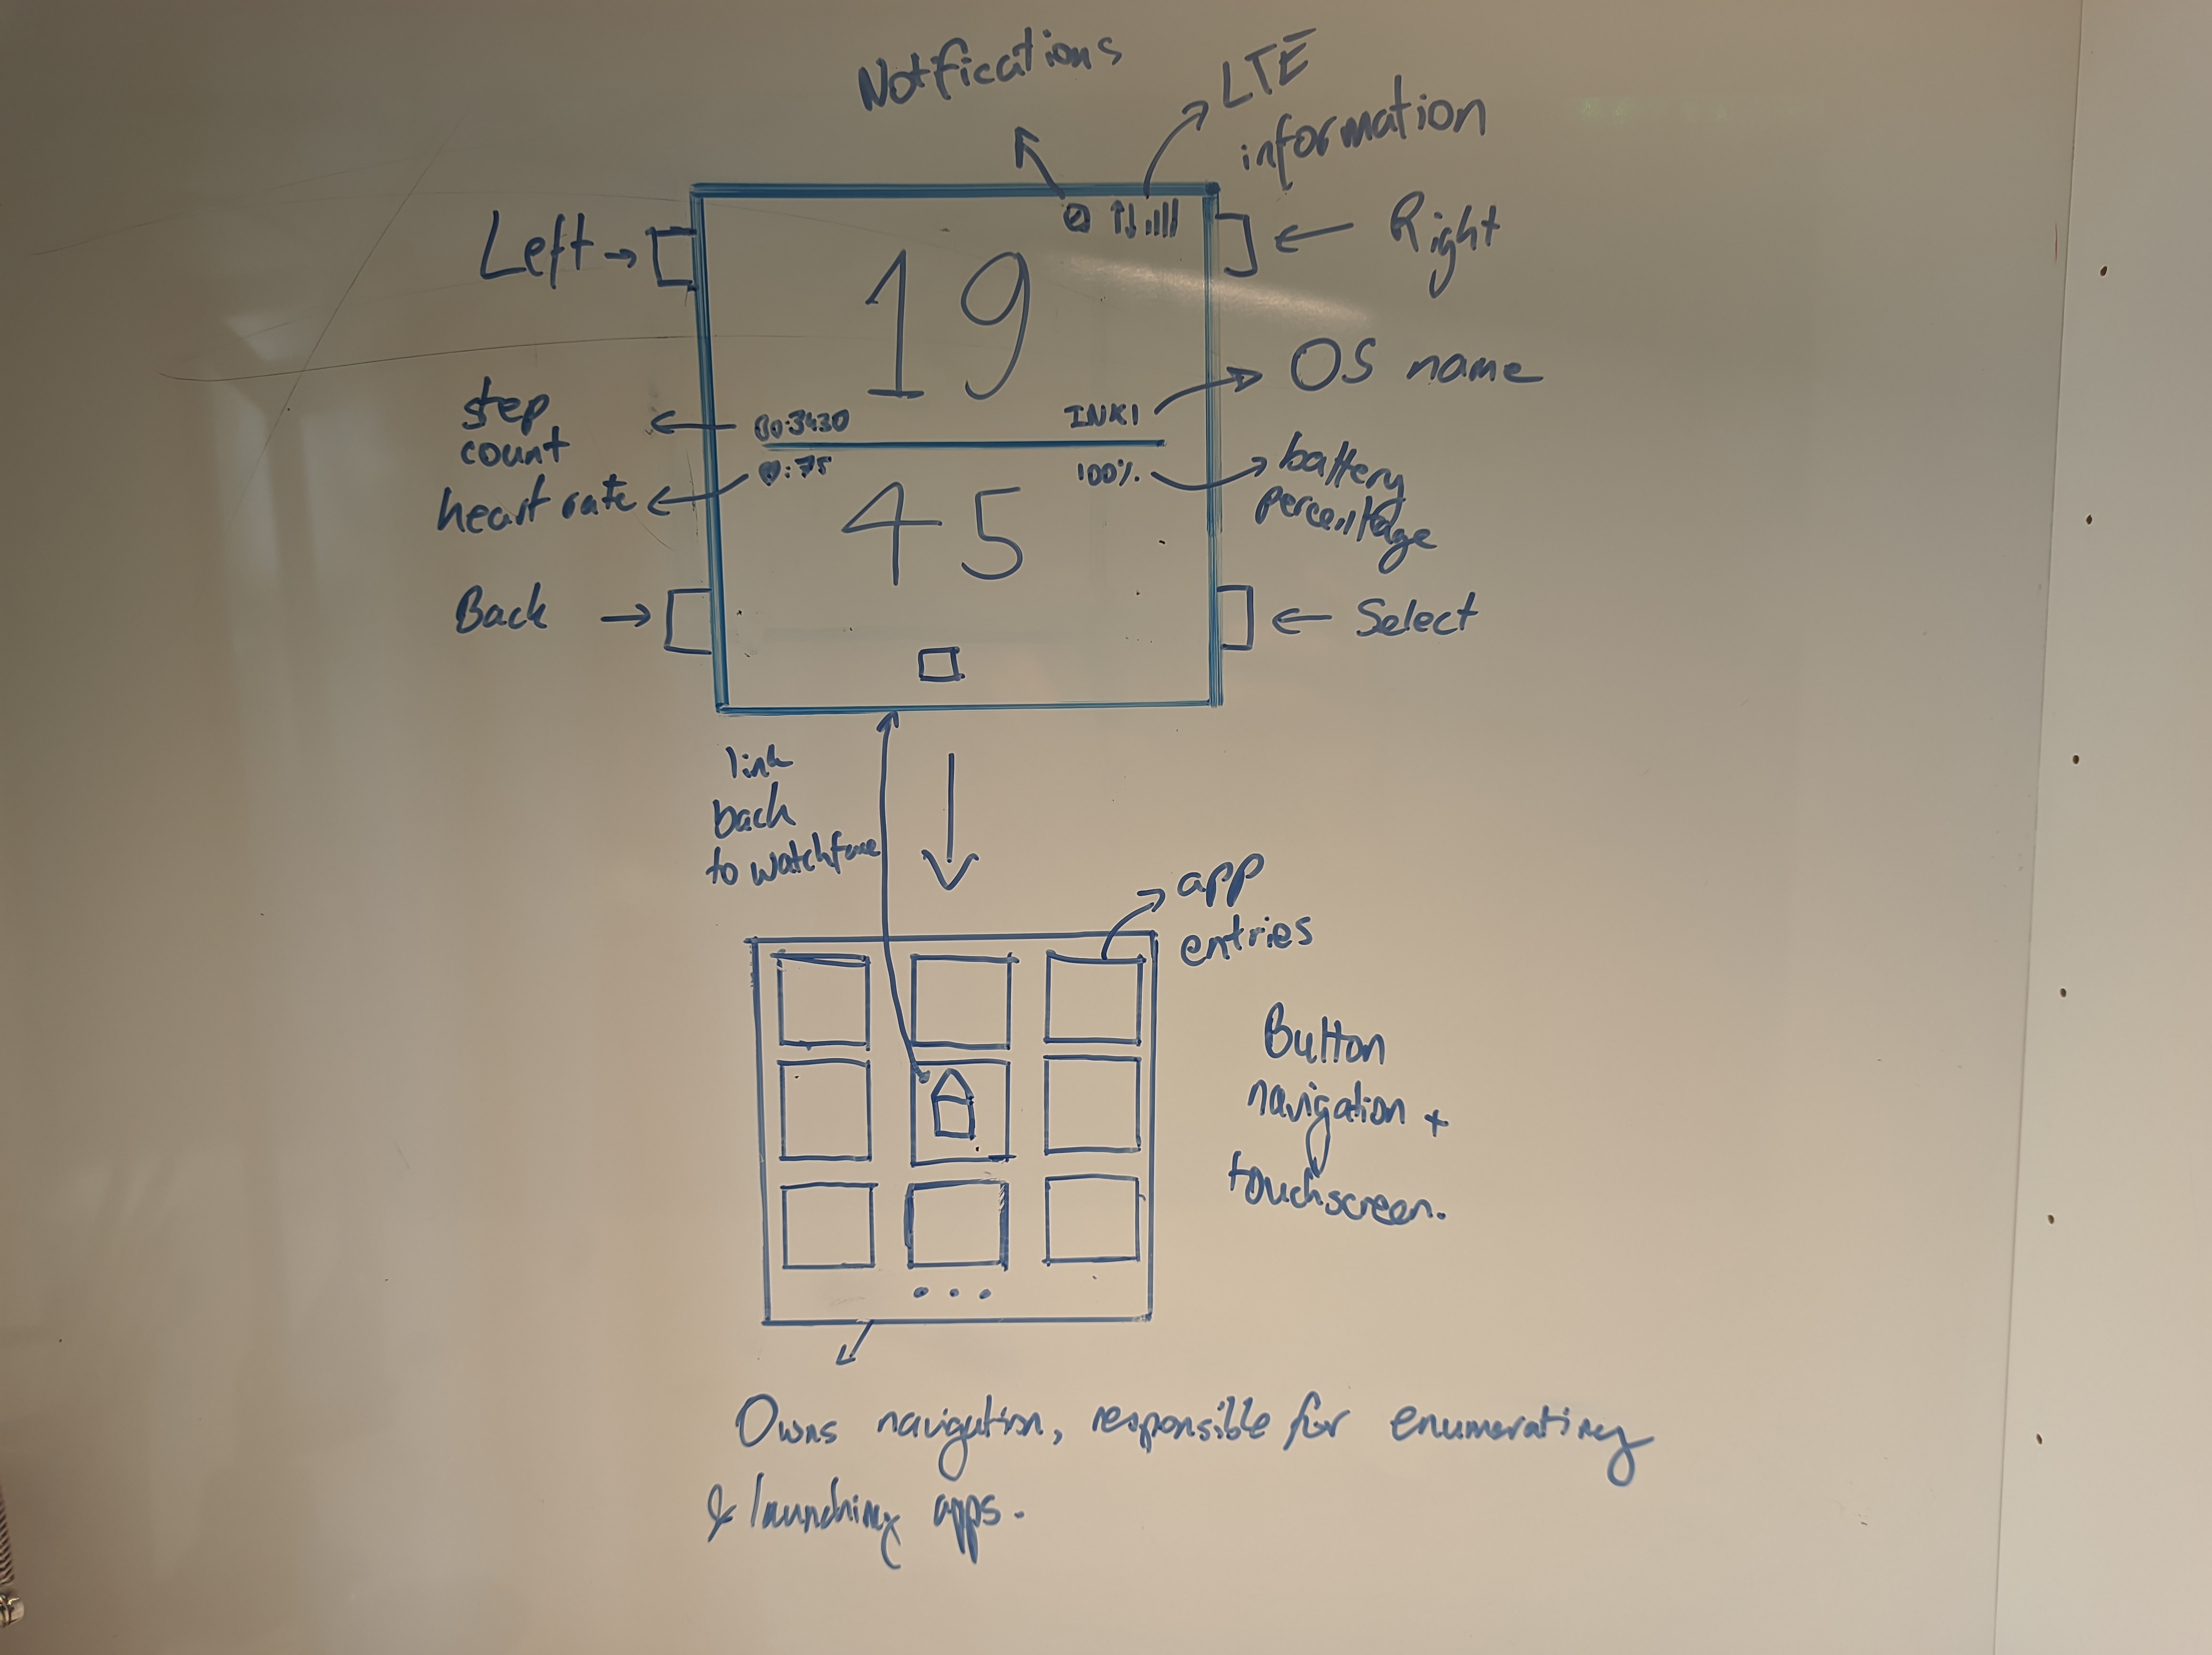 Notfications
LTE
information
Left
Right
19
OS name
step
count
:3430
INKI
:75
100%
battery
percentage
heart rate
45
Back
Select
link
back
to watchface
app
entries
Button
navigation +
touchscreen.
Owns navigation, responsible for enumerating
& launching apps.